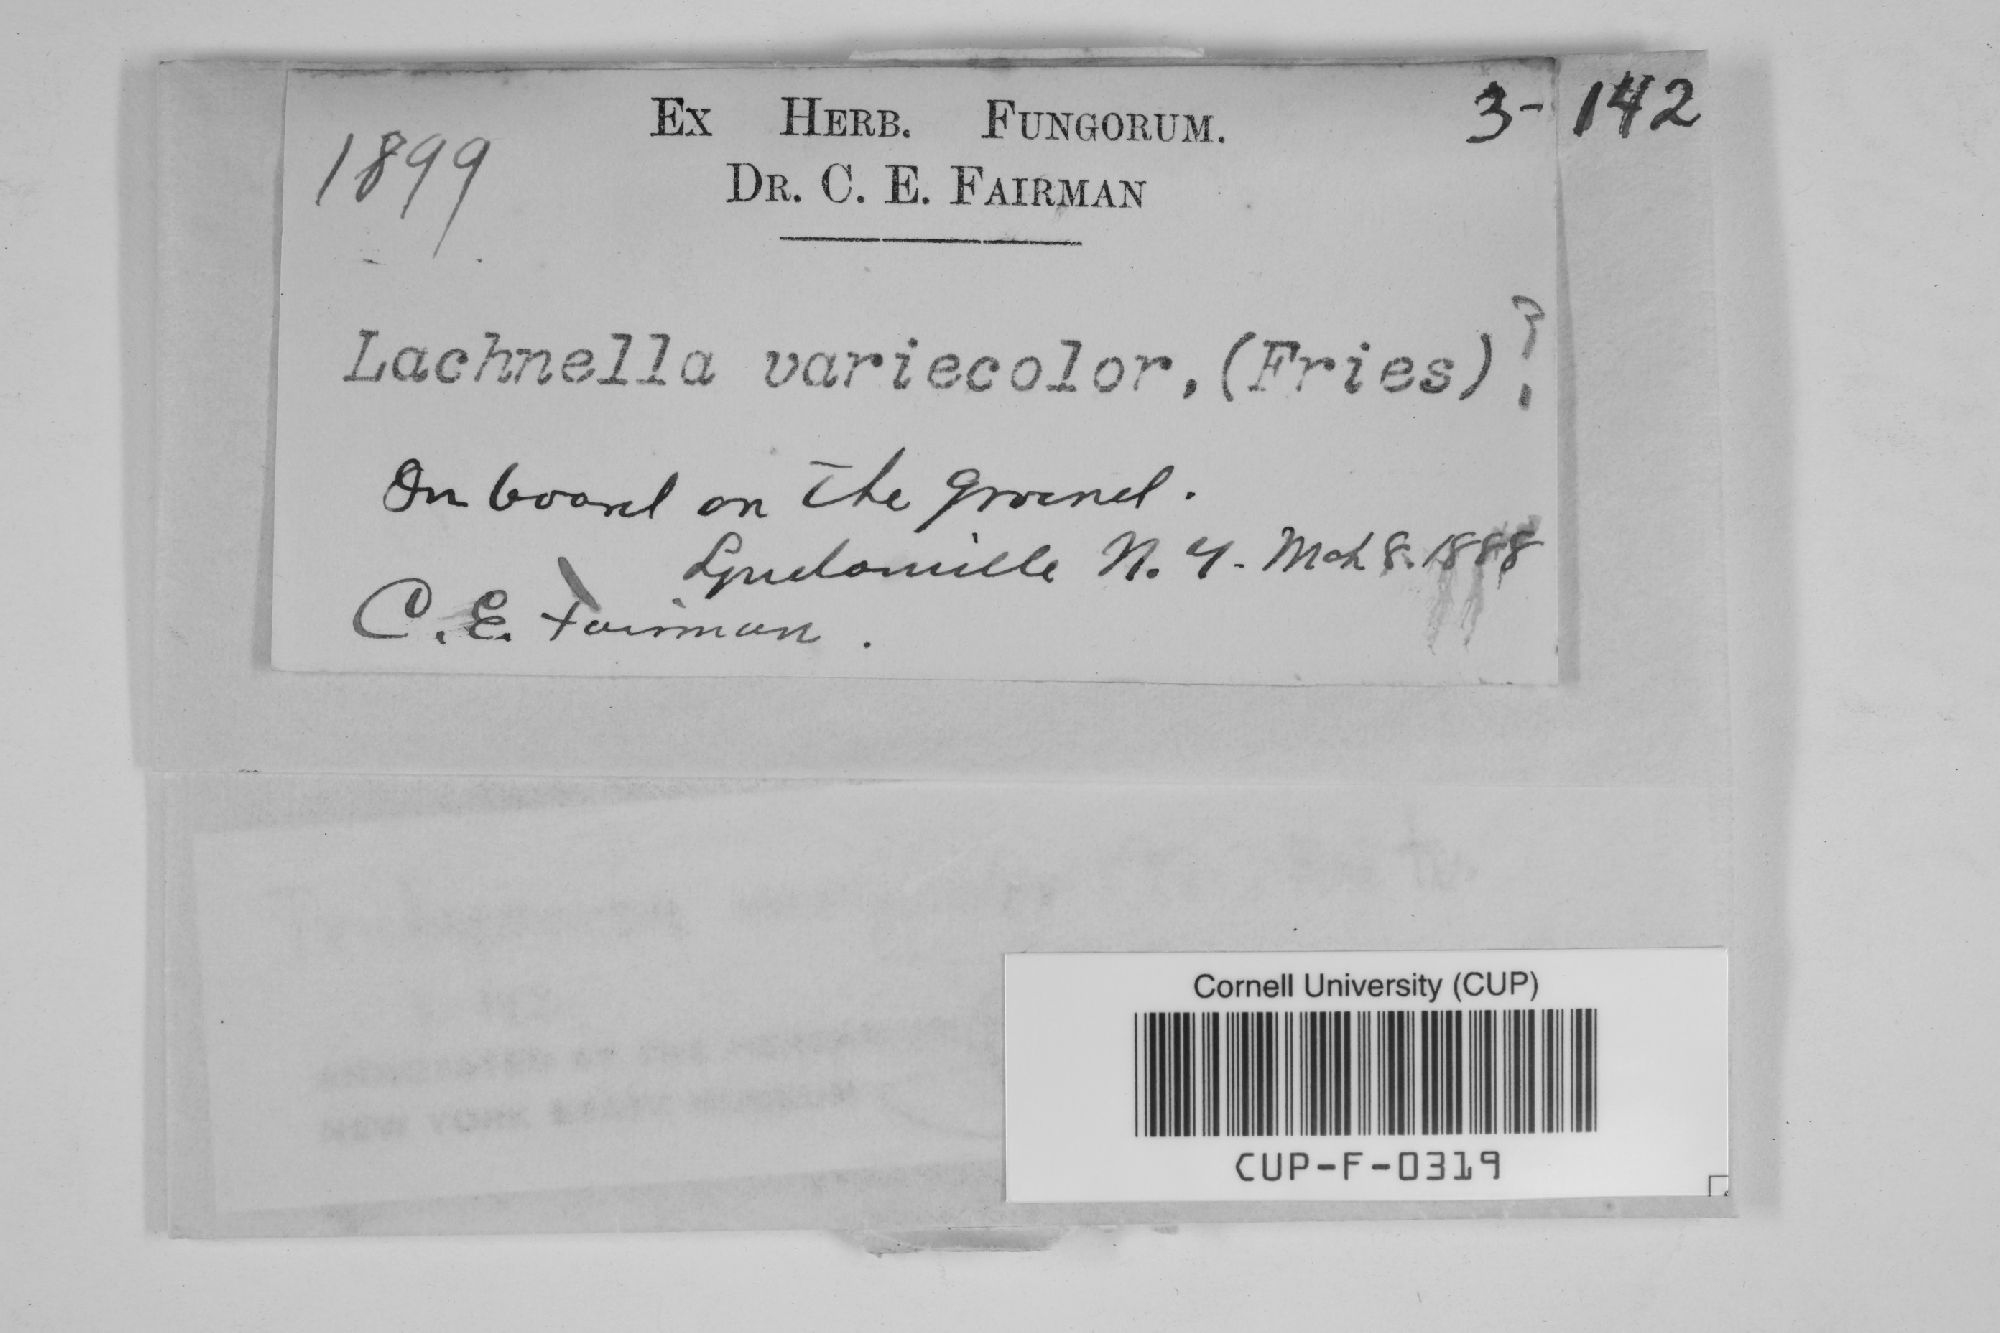 3-142
Ex Herb. Fungorum.
1899
Dr. C. E. Fairman
Lachnella variecolor, (Fries)?
On board on the ground.
Lyndonville N.Y. Mch 8. 1888
C. E. Fairman.
Cornell University (CUP)
CUP-F-0319